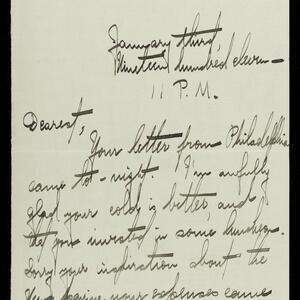 January third
Nineteen hundred eleven —
11 P.M.
Dearest,
Your letter from Philadelphia
came to-night. I'm awfully
glad your cold is better, and
that you invested in some
Sorry your inspiration about the
your expenses came